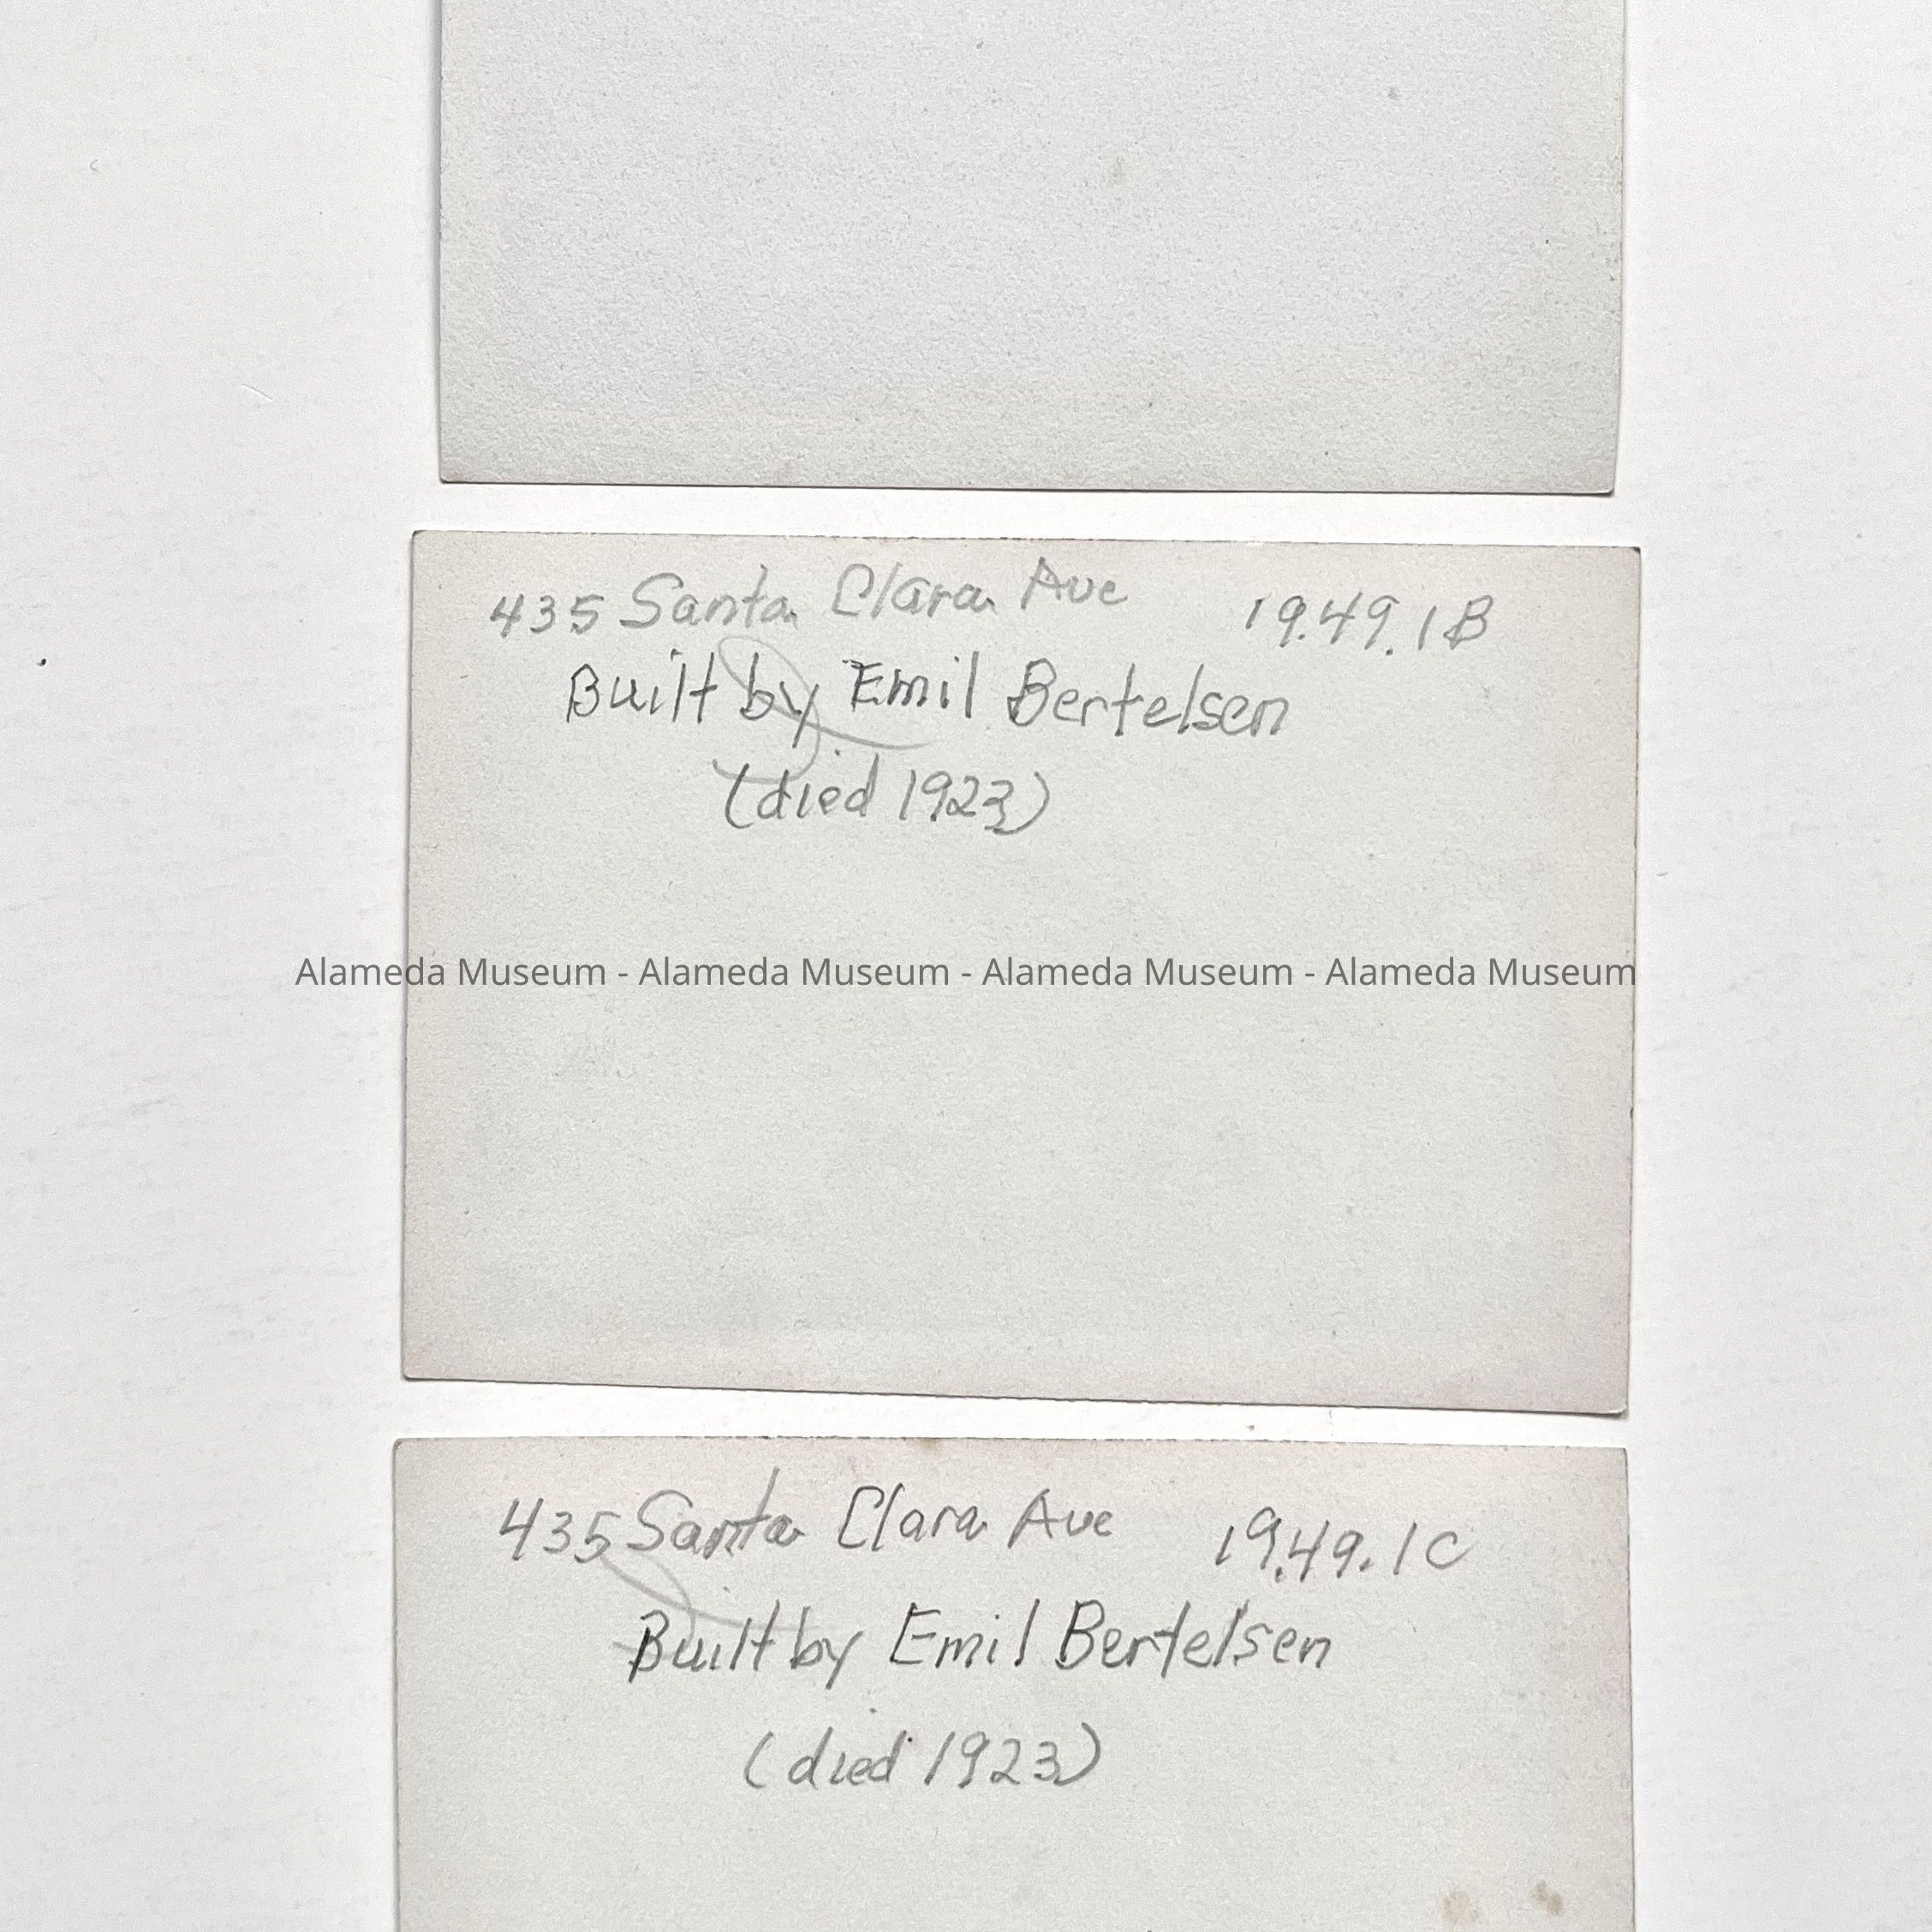 435 Santa Clara Ave 19.49.1B
Built by Emil Bertelsen
(died 1923)
Alameda Museum - Alameda Museum - Alameda Museum - Alameda Museum
435 Santa Clara Ave 19.49.1C
Built by Emil Bertelsen
(died 1923)